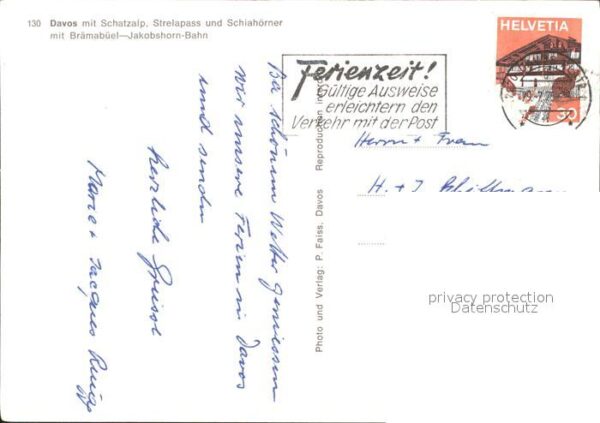 130 Davos mit Schatzalp, Strelapass und Schiahörner
mit Brämabüel—Jakobshorn-Bahn
HELVETIA
30
Ferienzeit!
Gültige Ausweise
erleichtern den
Verkehr mit der Post
Bei schönem Wetter geniessen
wir unsere Ferien in Davos
und senden
herzliche Grüsse
Marie + Jacques
Photo und Verlag: P. Faiss, Davos Reproduction
Herrn + Frau
H. + J.
privacy protection
Datenschutz